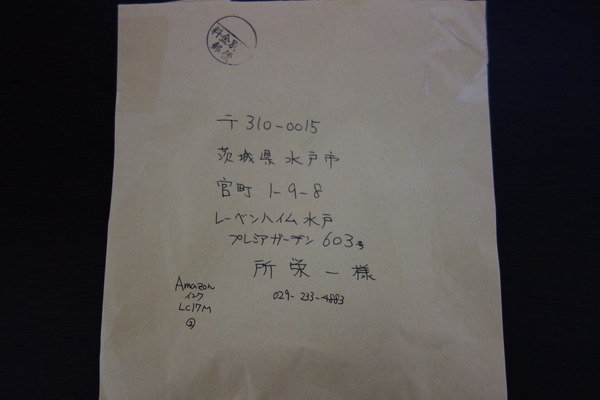 料金別
郵便
〒310-0015
茨城県水戸市
宮町 1-9-8
レーベンハイム水戸
プレミアガーデン 603号
所 栄一様
029-233-4883
Amazon
インク
LC17M
②